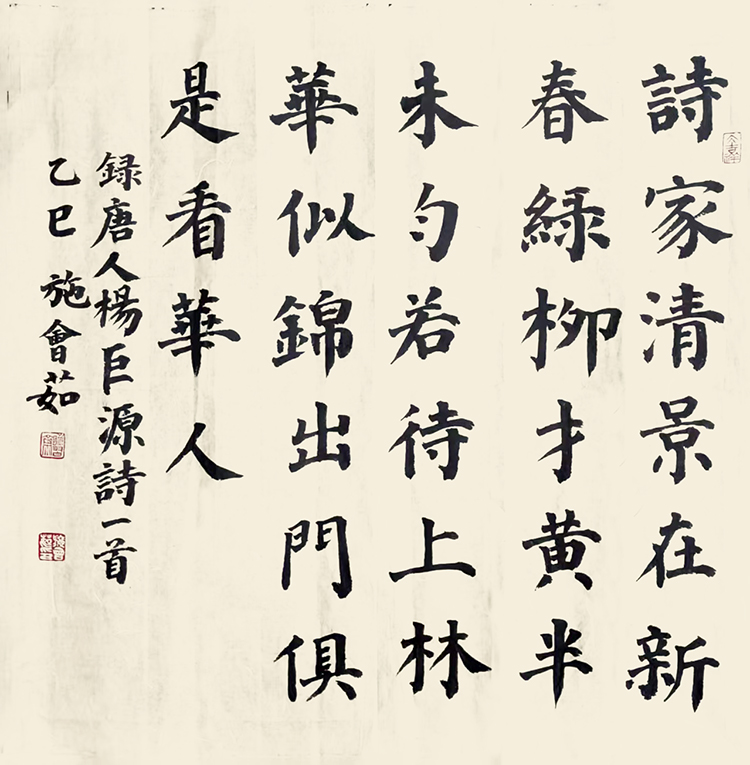 詩家清景在新
春綠柳才黄半
未勻若待上林
華似錦出門俱
是看華人
録唐人楊巨源詩一首
乙巳 施會茹